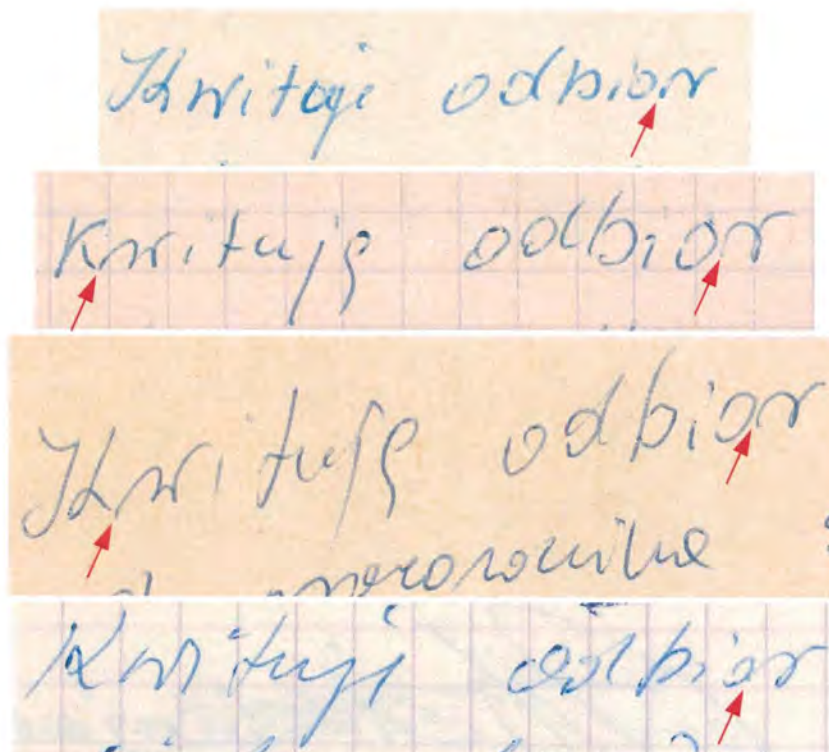 Kwituję odbior
Kwituję odbior
Kwituję odbior
Kwituję odbior